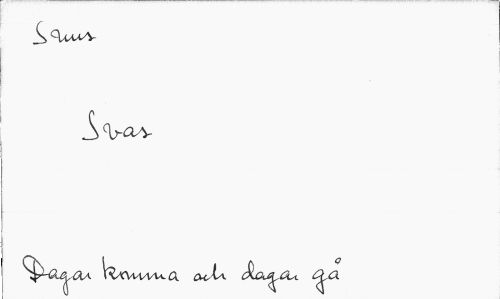 Svas
Dagar komma och dagar gå